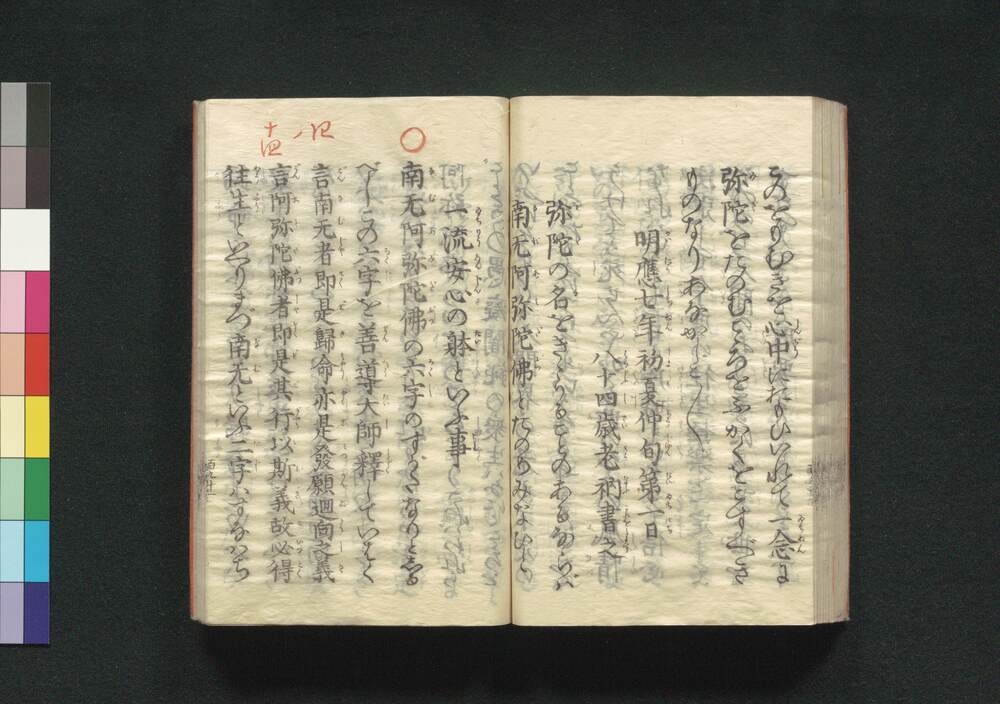 このをもむきを心中におもひいれて一念に
弥陀をたのむこころをふかくをこすべき
ものなりあなかしこ〱
明應七年初夏仲旬第一日
八十四歳老衲書之
弥陀の名をききうることのあるならば
南无阿弥陀佛とたのめみなひと
四ノ十四
一流安心の躰といふ事
南无阿弥陀佛の六字のすがたなりとしる
べしこの六字を善導大師釋していはく
言南无者即是歸命亦是發願迴向之義
言阿弥陀佛者即是其行以斯義故必得
往生といへりまづ南无といふ二字はすなはち